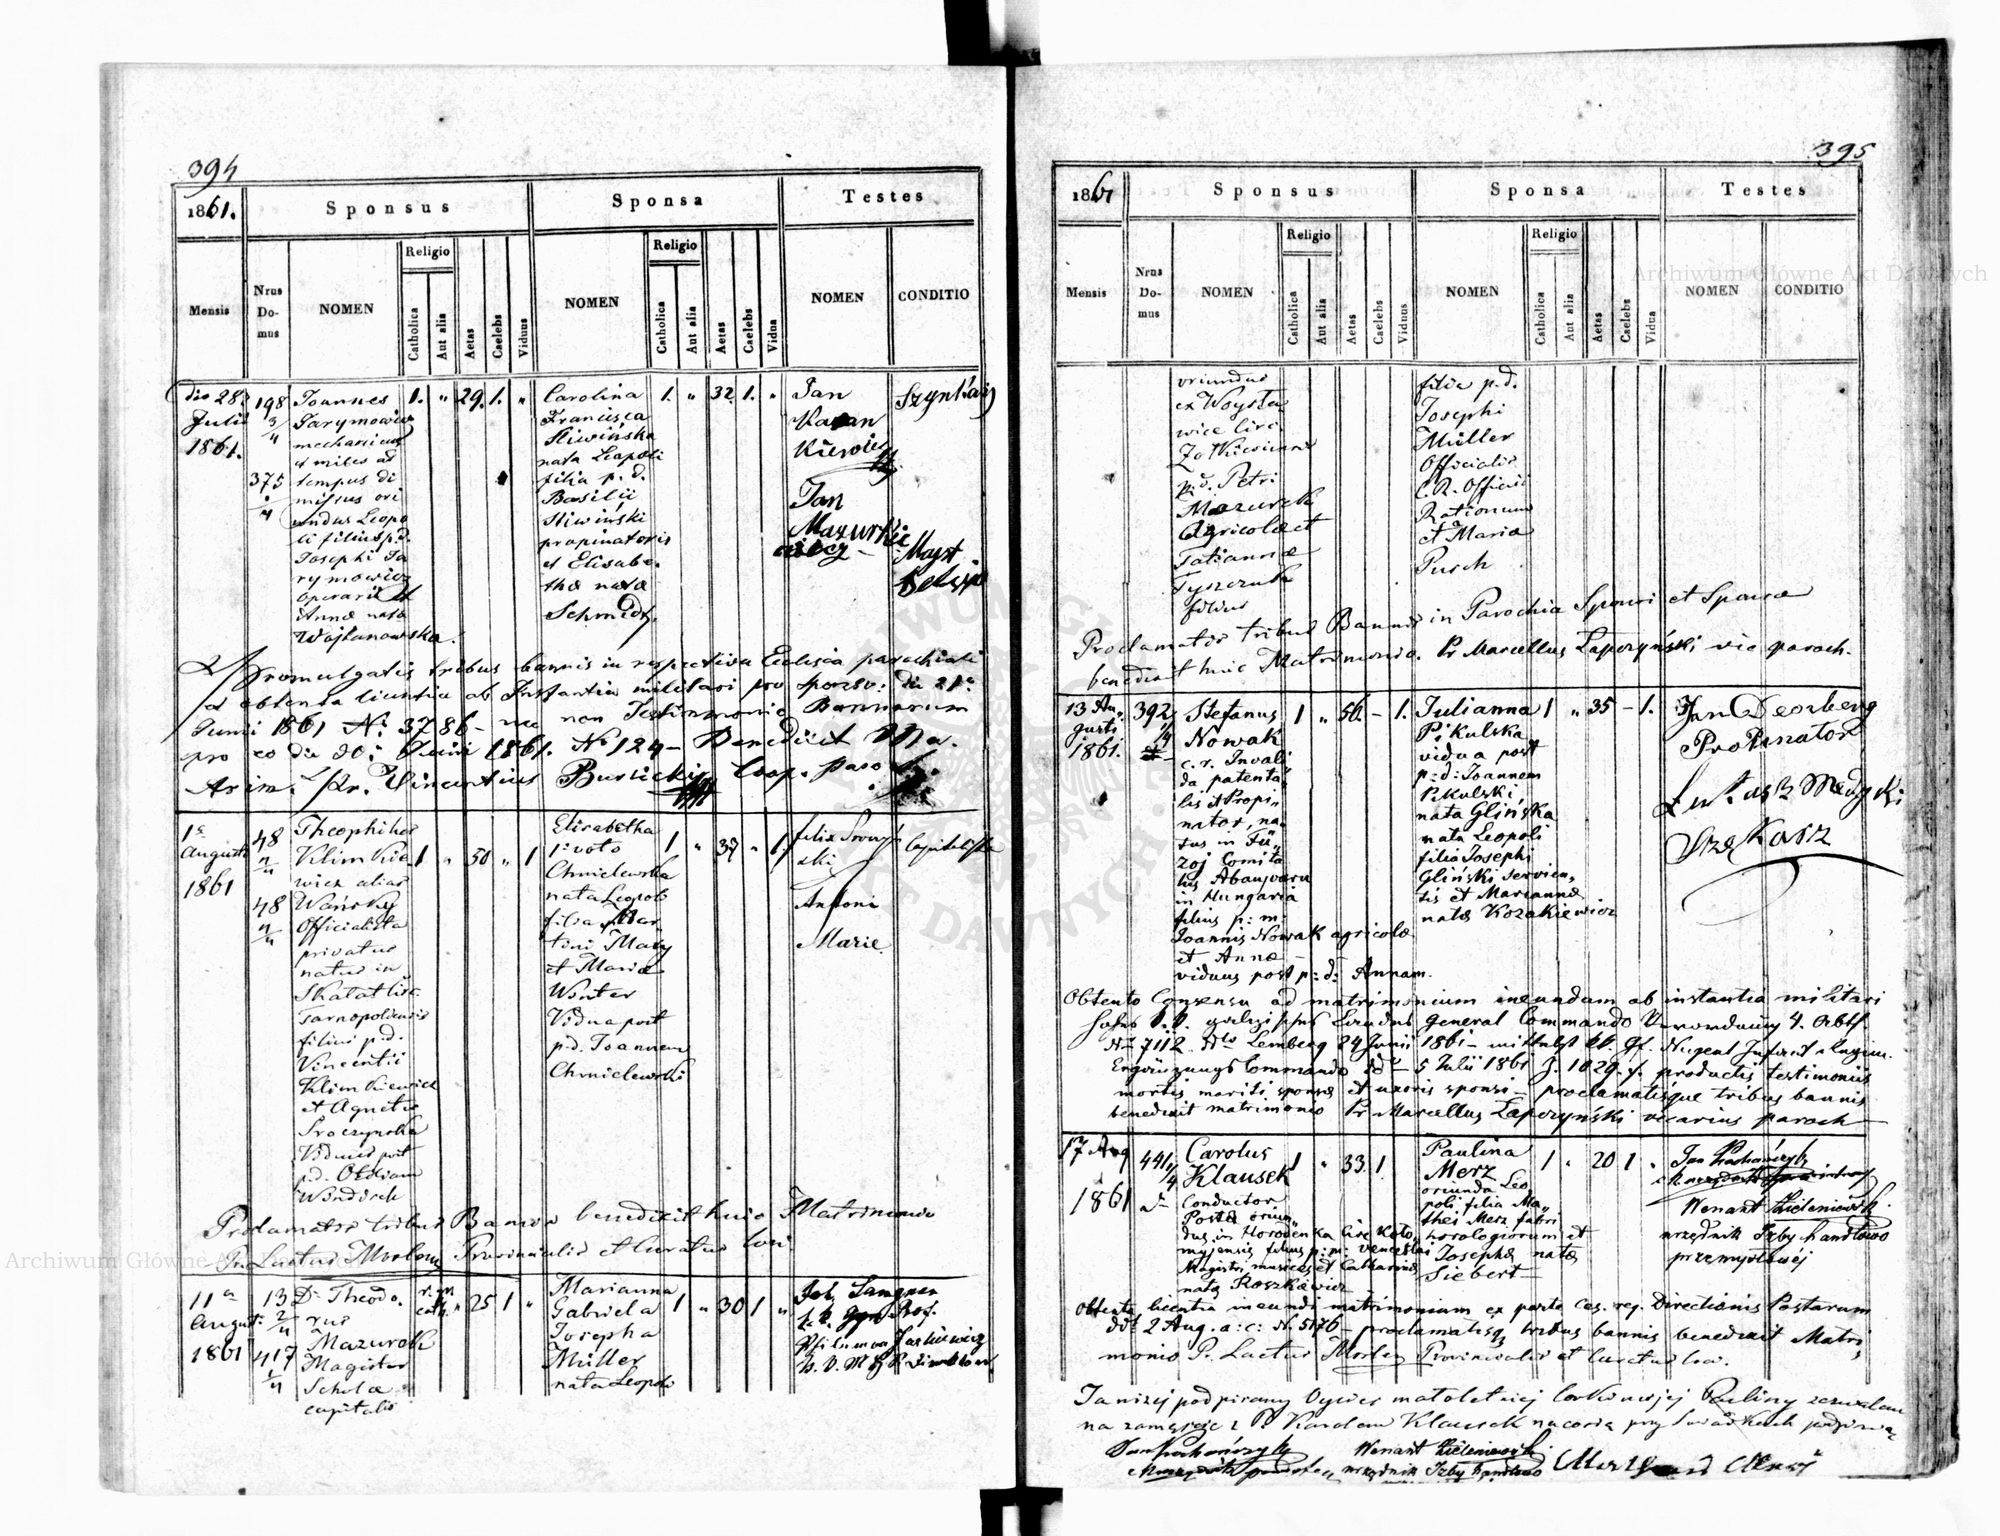 394
1861.
Sponsus
Sponsa
Testes
Mensis
Nrus Domus
NOMEN
Religio
Catholica
Aut alia
Aetas
Caelebs
Viduus
NOMEN
Religio
Catholica
Aut alia
Aetas
Caelebs
Vidua
NOMEN
CONDITIO
die 28
Julii
1861.
198 3/4
375 4
Joannes
Jarymowicz
mechanicus
et miles ad
tempus di
missus ori
undus Leopo
li filius p.d.
Josephi Ja
rymowicz
operarii et
Annæ nata
Wojtanowska.
1. " 29. 1. "
Carolina
Francisca
Sliwińska
nata Leopoli
filia p. d.
Basilii
Sliwiński
propinatoris
et Elisabe.
thæ natæ
Schmidt.
1. " 32. 1. "
Jan
Jan
Mazurkie
wicz
Szynkarz
Majst
Promulgatis tribus bannis in respectiva Ecclesia parochiali
et obtenta licentia ab Instantia militari pro sponso: die 21
Junii 1861 N: 3786 – nec non Testimonio Bannorum
pro eo die 30 Junii 1861. No 124 – Benedixit Ma.
Vincentius Coop.
1a
Augusti
1861
48 4/4
48 4/4
Theophilus
Klimkie
wicz alias
Wański
Officialista
privatus
natus in
Skałat Circ.
Tarnopoliensis
filius p.d.
Vincentii
Klimkiewicz
et Agnetis
Sroczyńska
Viduus post
p.d.
1 " 50 " 1
Elisabetha
1o voto
Chmielewska
nata Leopoli
filia Mar
tini Mary
et Mariæ
Winter
Vidua post
p.d. Joannem
Chmielewski
1 " 37 " 1.
Felix
Antoni
Marie
Proclamatis tribus Bannis benedixit huic Matrimonio
Fr. Laetus Provincialis et Curatus loci
11a
August:
1861
13 2/4
417 1/4
Dr Theodo.
rus
Mazurek
Magister
Scholæ
capitalis
25 1 "
Marianna
Gabriela
Josepha
Müller
nata Leopoli
1 " 30 1 "
395
1861
Sponsus
Sponsa
Testes
Mensis
Nrus Domus
NOMEN
Religio
Catholica
Aut alia
Aetas
Caelebs
Viduus
NOMEN
Religio
Catholica
Aut alia
Aetas
Caelebs
Vidua
NOMEN
CONDITIO
oriundus
ex Woysła
wice Circ.
Zołkiewiensi
p. d. Petri
Mazurek
Agricolæ et
Tatiannæ
Tyszczuk
filius
filia p.d.
Josephi
Müller
Officialis
C. R. Officii
Rationum
et Maria
Pusch
Proclamatis tribus Bannis in Parochia Sponsi et Sponsæ
benedixit huic Matrimonio. Pr Marcellus Łapczyński vic paroch.
13 Au.
gusti
1861.
392 1/4
Stefanus
Nowak
c. r. Invali
da patenta
lis et Propi
nator, na
tus in Fü
zoj Comita
tus Abaujvaru
in Hungaria
filius p: m.
Joannis Nowak agricolæ
et Annæ
viduus post p: d: Annam.
1 " 56. – 1.
Julianna
Pikulska
vidua post
p: d: Joannem
Pikulski
nata Glińska
nata Leopoli
filia Josephi
Gliński servien
tis et Mariannæ
natæ Kozakiewicz
1 " 35 – 1.
Jan Deorberg
Propinator
Obtento Consensu ad matrimonium ineundum ab instantia militari
General Commando Verordnung 4. Abth.
No 7112. Lemberg 24 Junii 1861 – mittelst Gf. Nugent
Ergänzungs Commando 5 Julii 1861 Z. 1029. productis testimoniis
mortis mariti sponsæ et uxoris sponsi – proclamatisque tribus bannis
benedixit matrimonio Pr Marcellus Łapczyński vicarius paroch
17 Aug
1861
441 1/4
Carolus
Klausek
Conductor
Postæ oriun
dus in Horodenka Circ Koło
myjensis filius p: m: Venceslai
Magistri musices et Catharinæ
natæ Roszkiewicz
1 " 33 1
Paulina
Merz
oriunda Leo
poli filia Ma
thei Merz fabri
horologiorum et
Josephæ natæ
Siebert
1 " 20 1 "
Wenant Zieleniewski
urzędnik Izby handlowo
przemysłowej
Obtenta licentia ineundi matrimonium ex parte Cæs. reg. Directionis Postarum
ddt 2 Aug. a: c: N. 5176 – proclamatisq tribus bannis benedixit Matri
monio P. Laetus Provincialis et Curatus loci.
Ja niżej podpisany Ojciec małoletniej Córki mojej Pauliny zezwalam
na zamęście z P. Karolem Klausek na co się przy świadkach podpisuję
Wenant Zieleniewski
urzędnik Izby handlowo
Archiwum Główne Akt Dawnych
Archiwum Główne Akt Dawnych